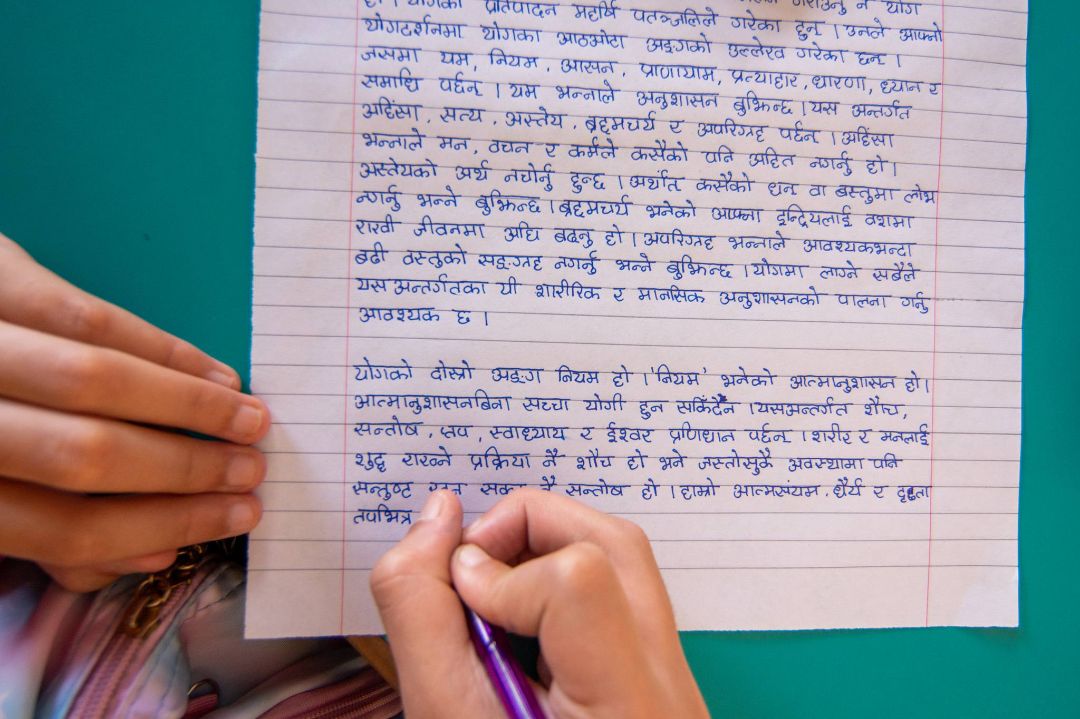 हो । योगको प्रतिपादन महर्षि पतञ्जलिले गरेका हुन् । उनले आफ्नो
योगदर्शनमा योगका आठओटा अङ्गको उल्लेख गरेका छन् ।
जसमा यम, नियम, आसन, प्राणायाम, प्रत्याहार, धारणा, ध्यान र
समाधि पर्छन् । यम भन्नाले अनुशासन बुझिन्छ । यस अन्तर्गत
अहिंसा, सत्य, अस्तेय, ब्रह्मचर्य र अपरिग्रह पर्छन् । अहिंसा
भन्नाले मन, वचन र कर्मले कसैको पनि अहित नगर्नु हो ।
अस्तेयको अर्थ नचोर्नु हुन्छ । अर्थात् कसैको धन वा बस्तुमा लोभ
नगर्नु भन्ने बुझिन्छ । ब्रह्मचर्य भनेको आफ्ना इन्द्रियलाई वशमा
राखी जीवनमा अघि बढ्नु हो । अपरिग्रह भन्नाले आवश्यकभन्दा
बढी वस्तुको सङ्ग्रह नगर्नु भन्ने बुझिन्छ । योगमा लाग्ने सबैले
यस अन्तर्गतका यी शारीरिक र मानसिक अनुशासनको पालना गर्नु
आवश्यक छ ।
योगको दोस्रो अङ्ग नियम हो । 'नियम' भनेको आत्मानुशासन हो ।
आत्मानुशासनबिना सच्चा योगी हुन सकिँदैन । यसअन्तर्गत शौच,
सन्तोष, तप, स्वाध्याय र ईश्वर प्रणिधान पर्छन् । शरीर र मनलाई
शुद्ध राख्ने प्रक्रिया नै शौच हो भने जस्तोसुकै अवस्थामा पनि
सन्तुष्ट नै सन्तोष हो । हाम्रो आत्मसंयम, धैर्य र दृढता
तपभित्र